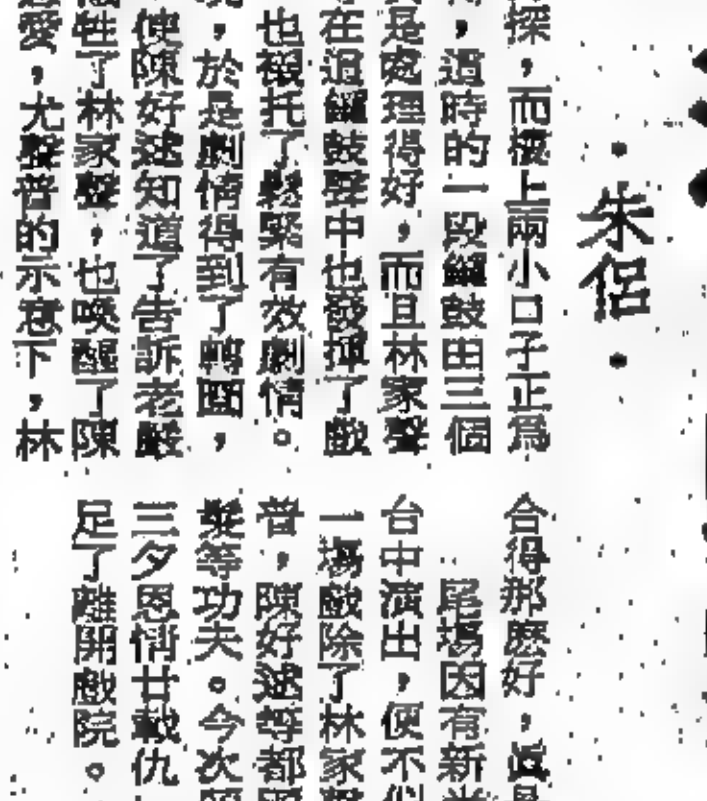 ·朱侶·
探，而樓上兩小口子正爲
，這時的一段鑼鼓由三個
是處理得好，而且林家聲
在這鑼鼓聲中也發揮了戲
也襯托了鬆緊有效劇情。
，於是劇情得到了轉圜，
使陳好逑知道了告訴老嚴
牲了林家聲，也喚醒了陳
愛，尤聲普的示意下，林
合得那麽好，眞是
尾場因有新
台中演出，便不似
一場戲除了林家聲
普，陳好逑等都
髮等功夫。今次
三夕恩情廿載仇
足了離開戲院。